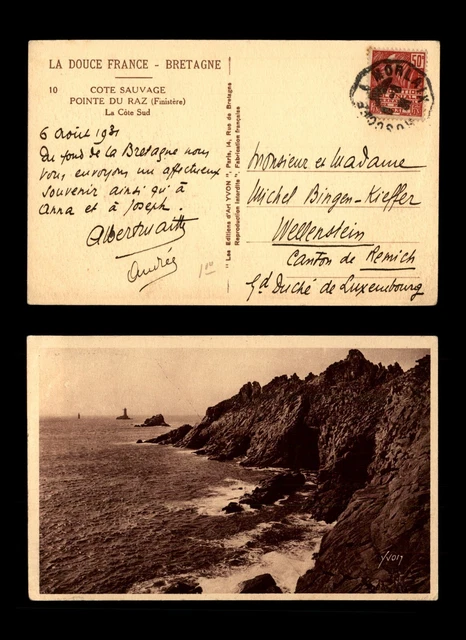 LA DOUCE FRANCE - BRETAGNE
10 COTE SAUVAGE
POINTE DU RAZ (Finistère)
La Côte Sud
6 Août 1931
Du fond de la Bretagne nous
vous envoyons un affectueux
souvenir ainsi qu'à
Anna et à Joseph.
André
1 00
"Les Editions d'Art YVON", Paris, 14, Rue de Bretagne
Reproduction interdite". Fabrication française
50c
MORLAIX
ROSCOFF
Monsieur et Madame
Michel Bingen-Kieffer
Wellenstein
Canton de Remich
Gd Duché de Luxembourg
YVON